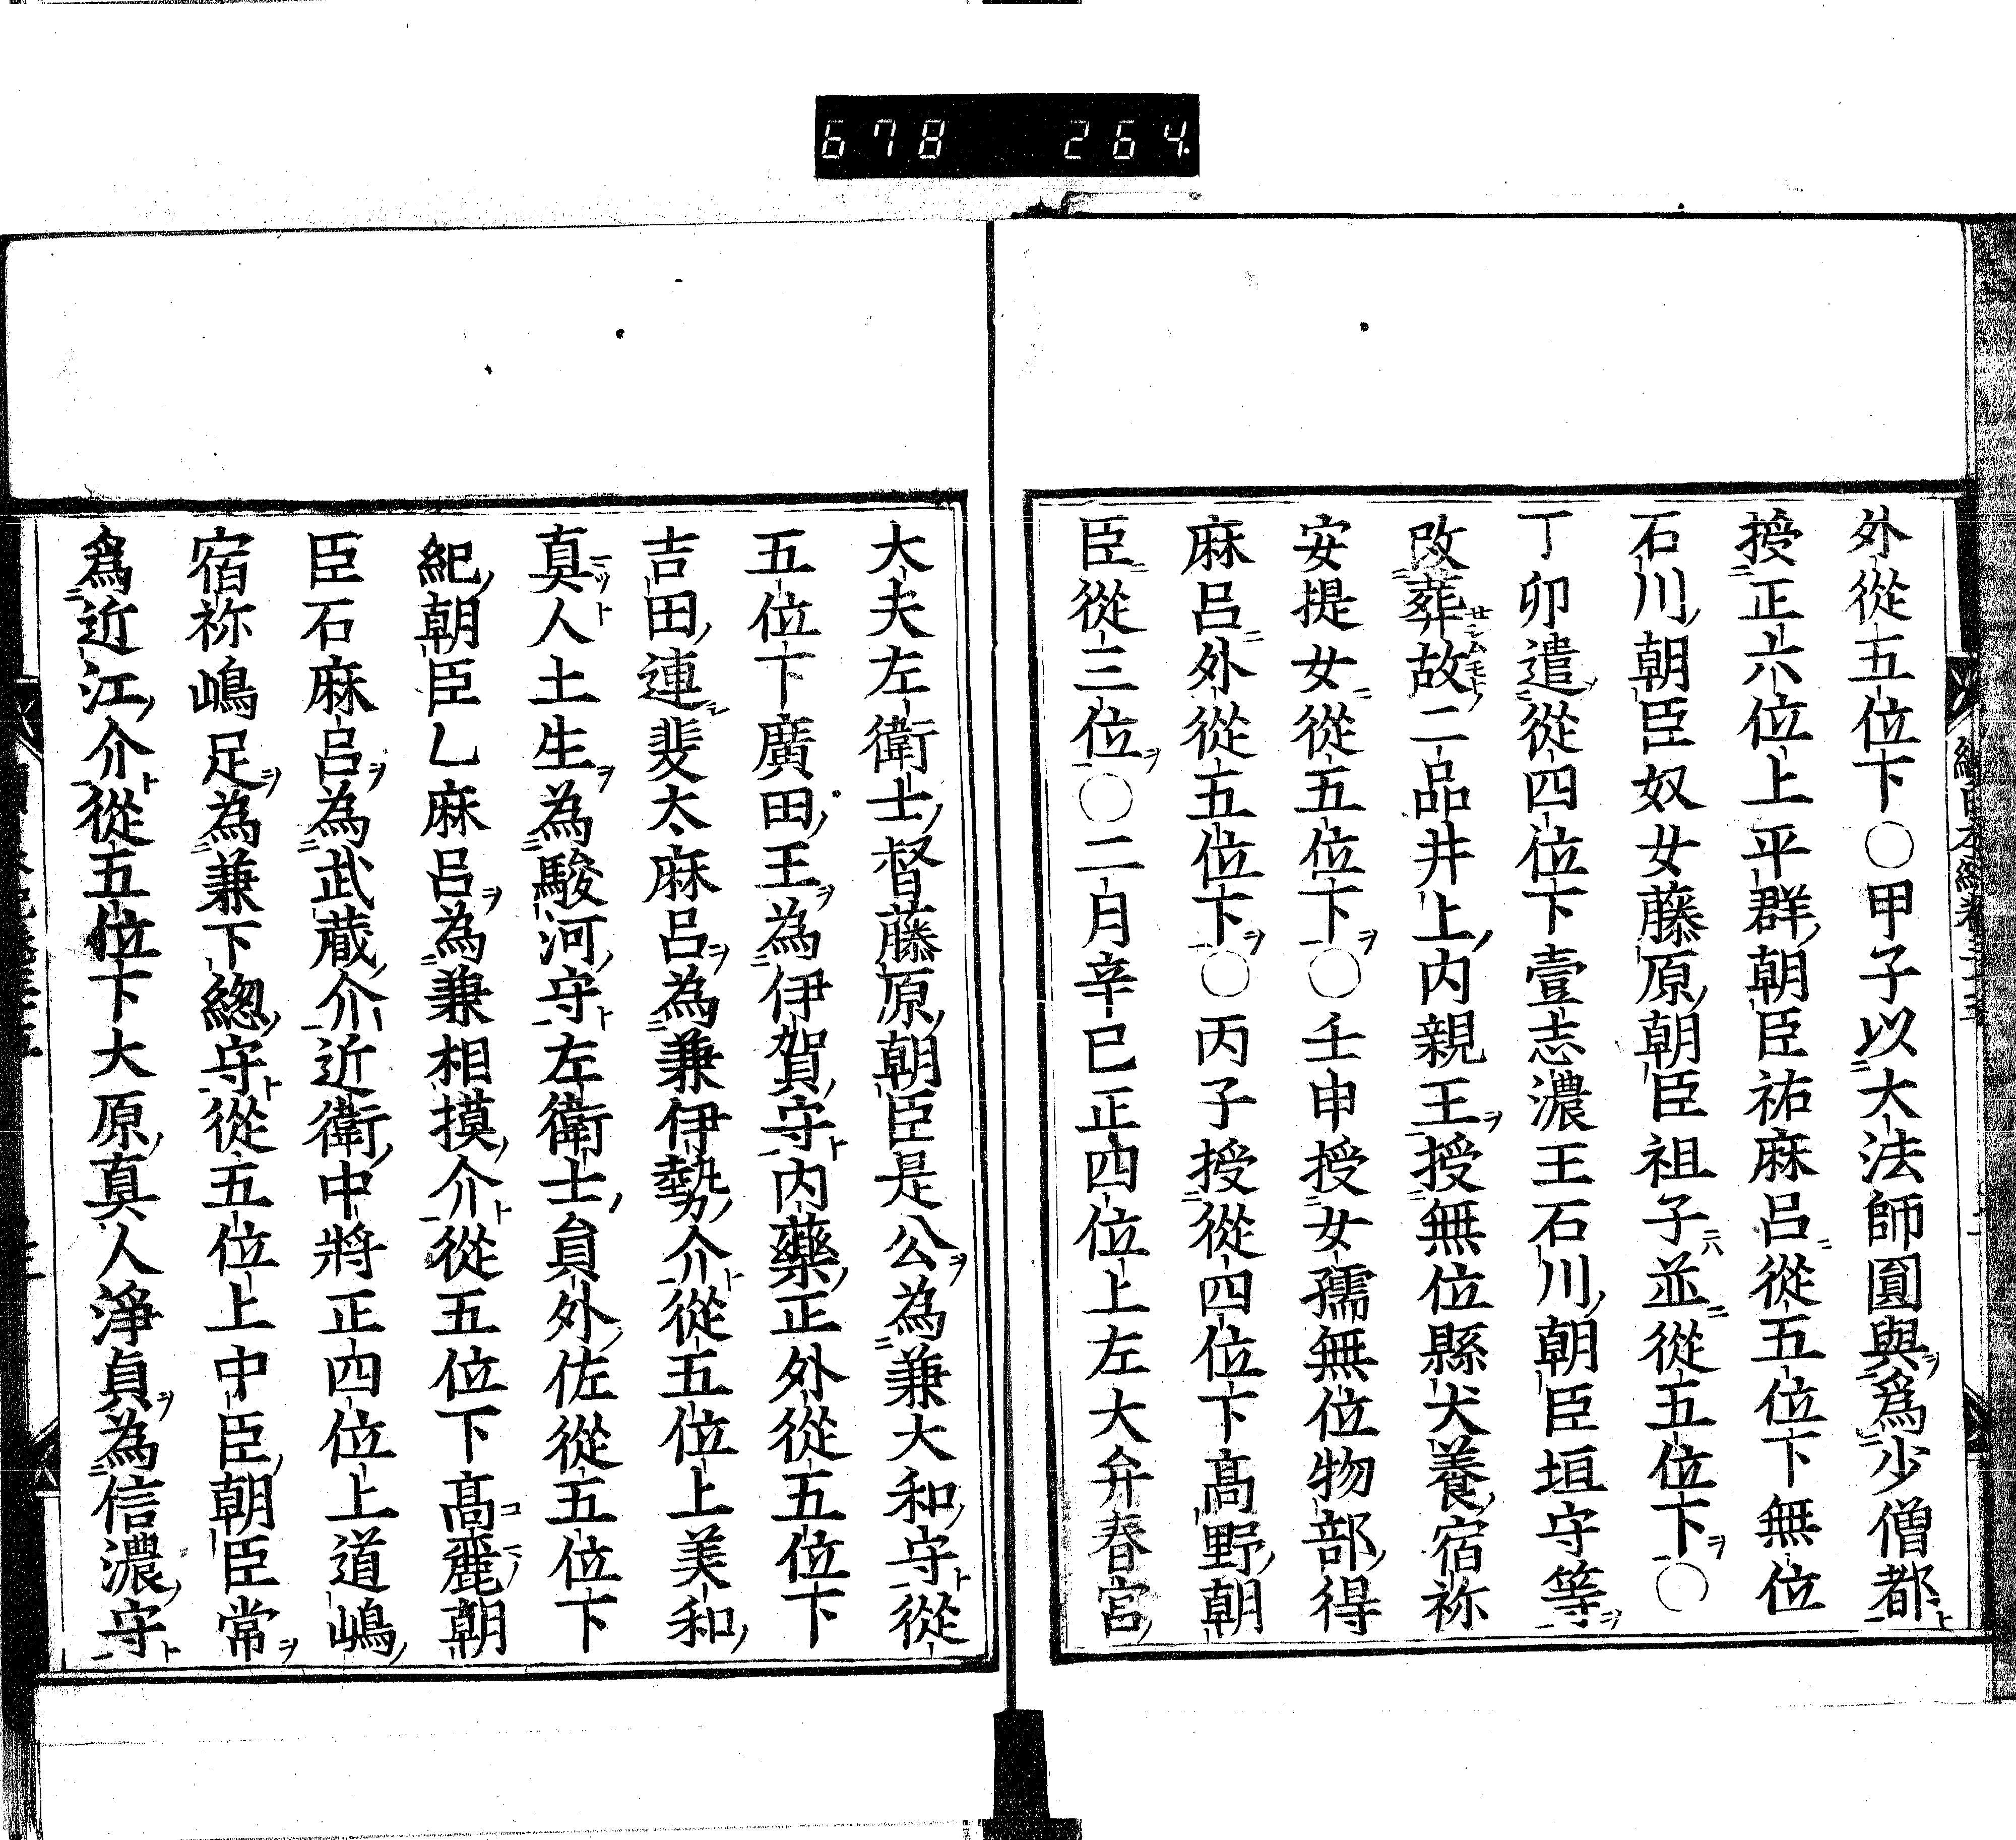 678 264
外從五位下○甲子以大法師圓與爲少僧都
授正六位上平群朝臣祐麻呂從五位下無位
石川朝臣奴女藤原朝臣祖子並從五位下○
丁卯遣從四位下壹志濃王石川朝臣垣守等
改葬故二品井上内親王授無位縣犬養宿祢
安提女從五位下○壬申授女孺無位物部得
麻呂外從五位下○丙子授從四位下髙野朝
臣從三位○二月辛巳正四位上左大弁春宮
大夫左衛士督藤原朝臣是公為兼大和守從
五位下廣田王為伊賀守内藥正外從五位下
吉田連斐太麻呂為兼伊勢介從五位上美和
真人土生為駿河守左衛士員外佐從五位下
紀朝臣乙麻呂為兼相摸介從五位下髙麗朝
臣石麻呂為武蔵介近衛中將正四位上道嶋
宿祢嶋足為兼下總守從五位上中臣朝臣常
爲近江介從五位下大原真人淨貞為信濃守